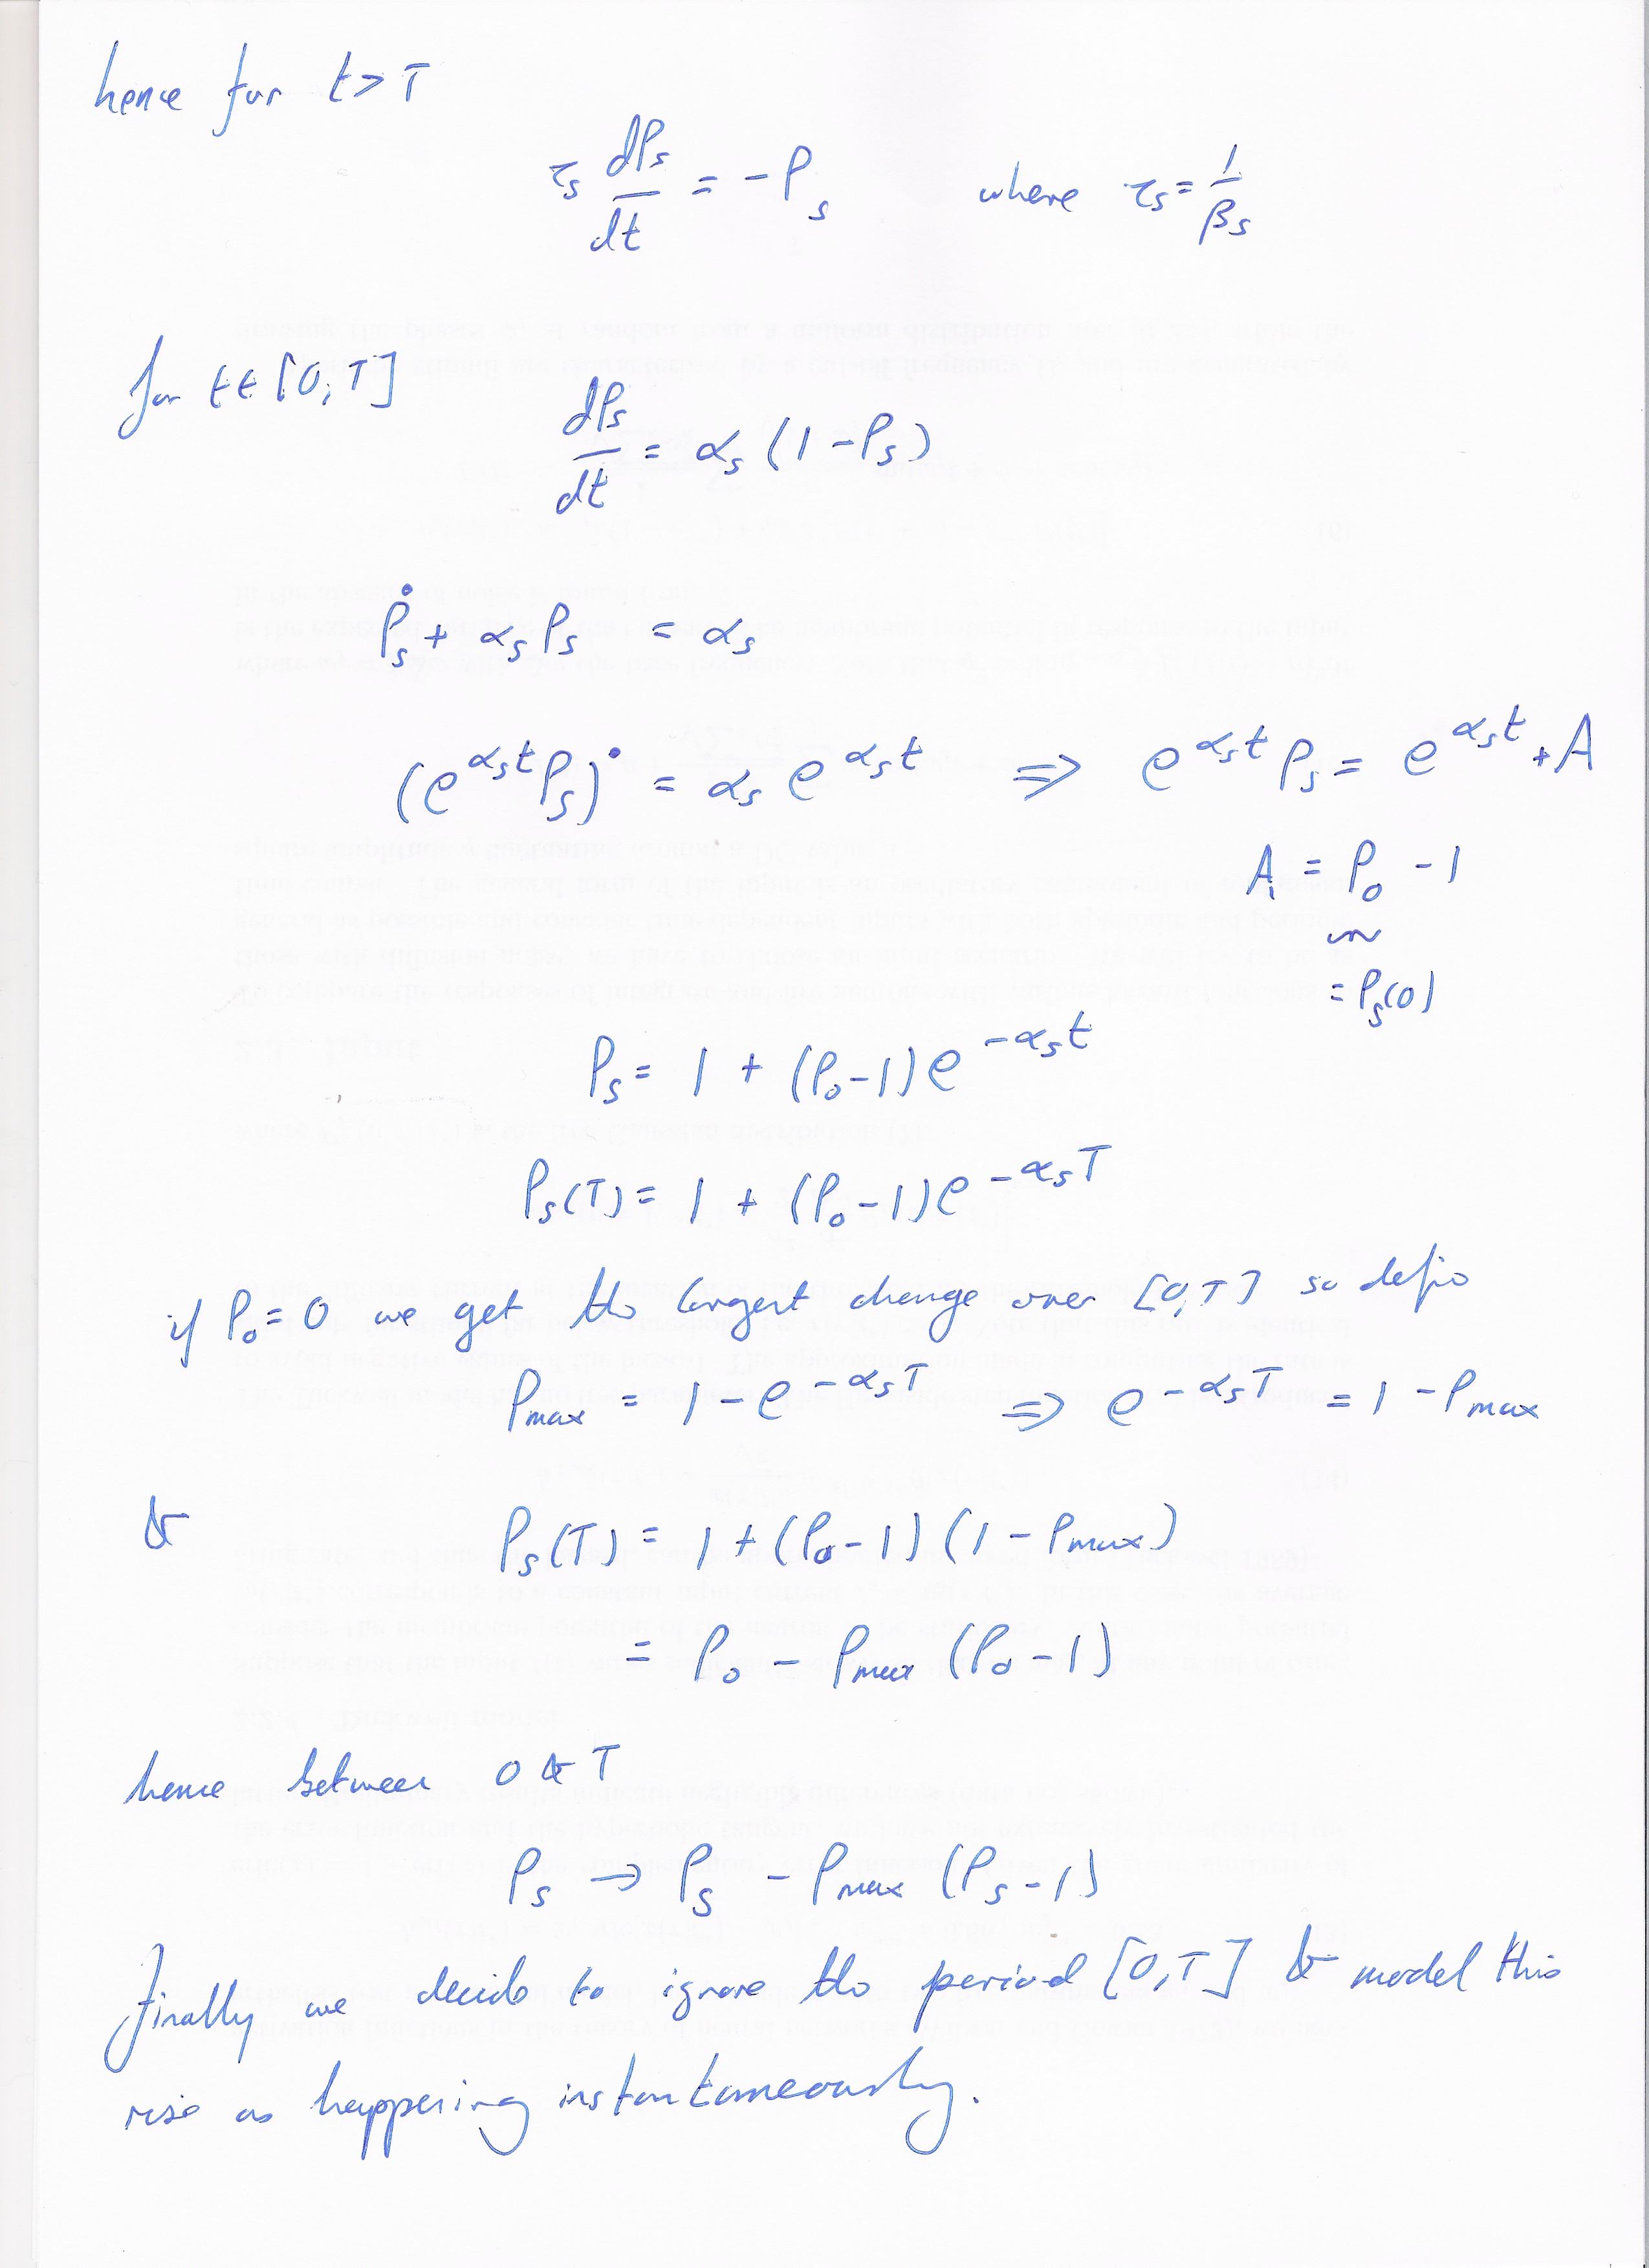 hence for t > T
τ_s dP_s/dt = -P_s where τ_s = 1/β_s
for t ∈ [0, T]
dP_s/dt = α_s (1 - P_s)
Ṗ_s + α_s P_s = α_s
(e^{α_s t} P_s)˙ = α_s e^{α_s t} ⇒ e^{α_s t} P_s = e^{α_s t} + A
A = P_0 - 1
= P_s(0)
P_s = 1 + (P_0 - 1) e^{-α_s t}
P_s(T) = 1 + (P_0 - 1) e^{-α_s T}
if P_0 = 0 we get the largest change over [0, T] so define
P_max = 1 - e^{-α_s T} ⇒ e^{-α_s T} = 1 - P_max
& P_s(T) = 1 + (P_0 - 1)(1 - P_max)
= P_0 - P_max (P_0 - 1)
hence between 0 & T
P_s → P_s - P_max (P_s - 1)
finally we decide to ignore the period [0, T] & model this
rise as happening instantaneously.